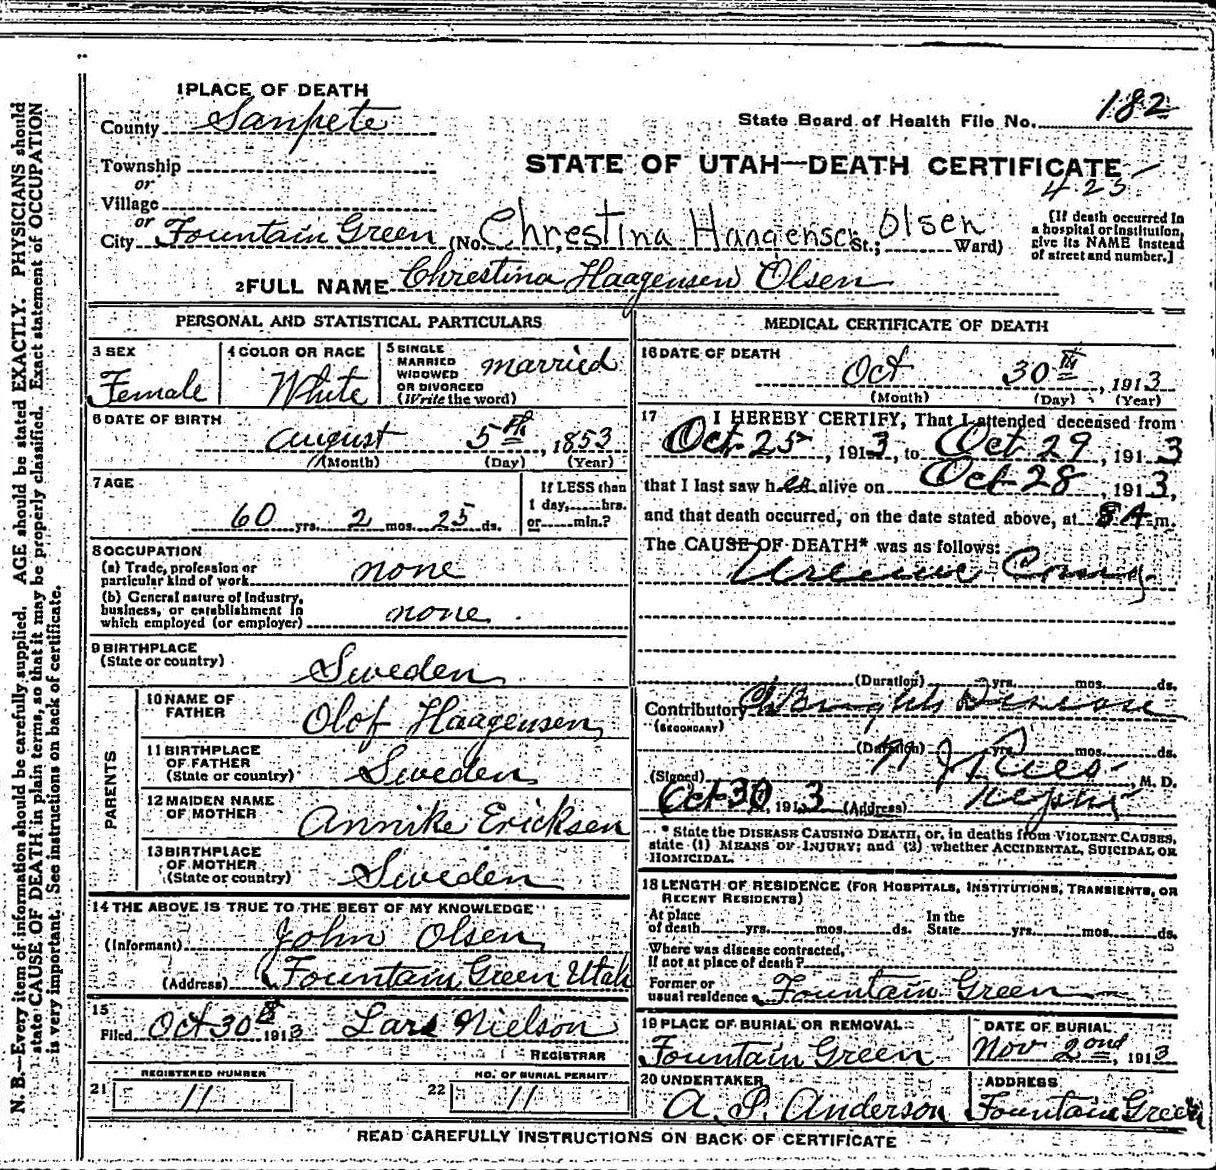 1 PLACE OF DEATH
County Sanpete
State Board of Health File No. 182
Township
STATE OF UTAH—DEATH CERTIFICATE
or
425
Village
or
City Fountain Green (No. Chrestina Haagensen St.; Olsen Ward)
[If death occurred in
a hospital or institution,
give its NAME instead
of street and number.]
2 FULL NAME Chrestina Haagensen Olsen
PERSONAL AND STATISTICAL PARTICULARS
3 SEX
Female
4 COLOR OR RACE
White
5 SINGLE
MARRIED
WIDOWED
OR DIVORCED
(Write the word)
married
6 DATE OF BIRTH
August 5th, 1853
(Month) (Day) (Year)
7 AGE
60 yrs. 2 mos. 25 ds.
If LESS than
1 day,......hrs.
or......min.?
8 OCCUPATION
(a) Trade, profession or
particular kind of work none
(b) General nature of Industry,
business, or establishment in
which employed (or employer) none
9 BIRTHPLACE
(State or country)
Sweden
PARENTS
10 NAME OF
FATHER
Olof Haagensen
11 BIRTHPLACE
OF FATHER
(State or country)
Sweden
12 MAIDEN NAME
OF MOTHER
Annike Ericksen
13 BIRTHPLACE
OF MOTHER
(State or country)
Sweden
14 THE ABOVE IS TRUE TO THE BEST OF MY KNOWLEDGE
(Informant) John Olsen
(Address) Fountain Green Utah
15
Filed Oct 30th 1913 Lars Nielson
REGISTRAR
REGISTERED NUMBER
21 11
NO. OF BURIAL PERMIT
22 11
MEDICAL CERTIFICATE OF DEATH
16 DATE OF DEATH
Oct 30th, 1913
(Month) (Day) (Year)
17 I HEREBY CERTIFY, That I attended deceased from
Oct 25, 1913, to Oct 29, 1913
that I last saw her alive on Oct 28, 1913,
and that death occurred, on the date stated above, at 8 A m.
The CAUSE OF DEATH* was as follows:
Uremic Coma
(Duration) yrs. mos. ds.
Contributory Brights Disease
(SECONDARY)
(Duration) yrs. mos. ds.
(Signed) Rees, M. D.
Oct 30, 1913 (Address) Nephi
* State the DISEASE CAUSING DEATH, or, in deaths from VIOLENT CAUSES,
state (1) MEANS OF INJURY; and (2) whether ACCIDENTAL, SUICIDAL OR
HOMICIDAL.
18 LENGTH OF RESIDENCE (FOR HOSPITALS, INSTITUTIONS, TRANSIENTS, OR
RECENT RESIDENTS)
At place
of death yrs. mos. ds.
In the
State yrs. mos. ds.
Where was disease contracted,
if not at place of death?
Former or
usual residence Fountain Green
19 PLACE OF BURIAL OR REMOVAL
Fountain Green
DATE OF BURIAL
Nov 2nd, 1913
20 UNDERTAKER
A. P. Anderson
ADDRESS
Fountain Green
READ CAREFULLY INSTRUCTIONS ON BACK OF CERTIFICATE
N. B.—Every item of information should be carefully supplied. AGE should be stated EXACTLY. PHYSICIANS should
state CAUSE OF DEATH in plain terms, so that it may be properly classified. Exact statement of OCCUPATION
is very important. See instructions on back of certificate.